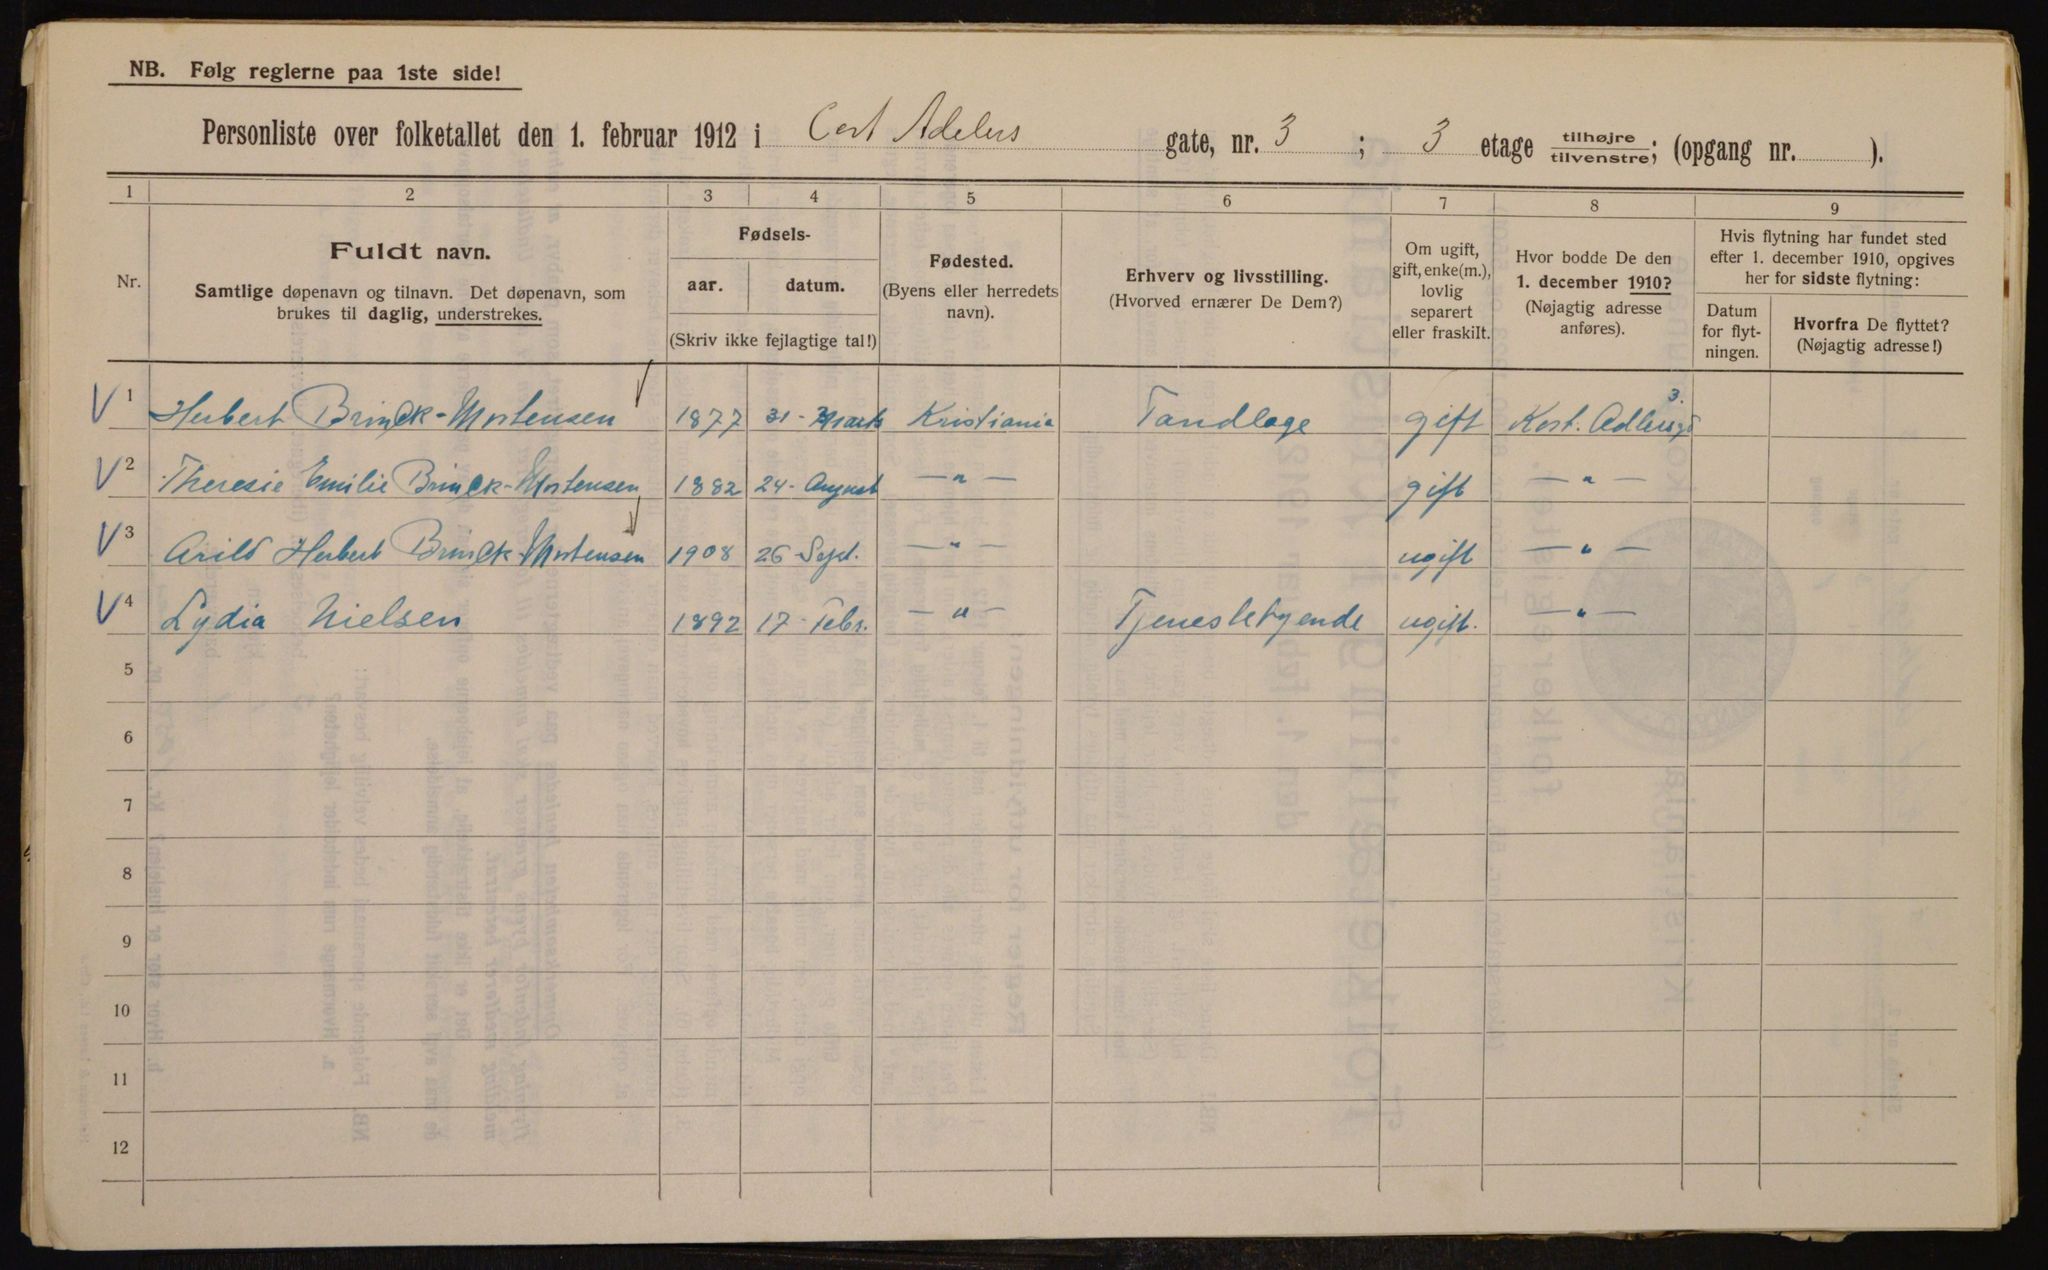 NB. Følg reglerne paa 1ste side!
Personliste over folketallet den 1. februar 1912 i Cort Adelers gate, nr. 3 ; 3 etage tilhøjre/tilvenstre; (opgang nr. ).
1 2 3 4 5 6 7 8 9
Nr.
Fuldt navn.
Samtlige døpenavn og tilnavn. Det døpenavn, som
brukes til daglig, understrekes.
Fødsels-
aar. datum.
(Skriv ikke fejlagtige tal!)
Fødested.
(Byens eller herredets
navn).
Erhverv og livsstilling.
(Hvorved ernærer De Dem?)
Om ugift,
gift, enke(m.),
lovlig
separert
eller fraskilt.
Hvor bodde De den
1. december 1910?
(Nøjagtig adresse
anføres).
Hvis flytning har fundet sted
efter 1. december 1910, opgives
her for sidste flytning:
Datum
for flyt-
ningen.
Hvorfra De flyttet?
(Nøjagtig adresse!)
1 Herbert Brinck-Mortensen 1877 31 - Marts Kristiania Tandlæge gift Kort. Adlersgd 3.
2 Theresie Emilie Brinck-Mortensen 1882 24 - August — " — gift — " —
3 Arild Herbert Brinck-Mortensen 1908 26 - Sept. — " — ugift — " —
4 Lydia Nielsen 1892 17 - Febr. — " — Tjenestetyende ugift. — " —
5
6
7
8
9
10
11
12